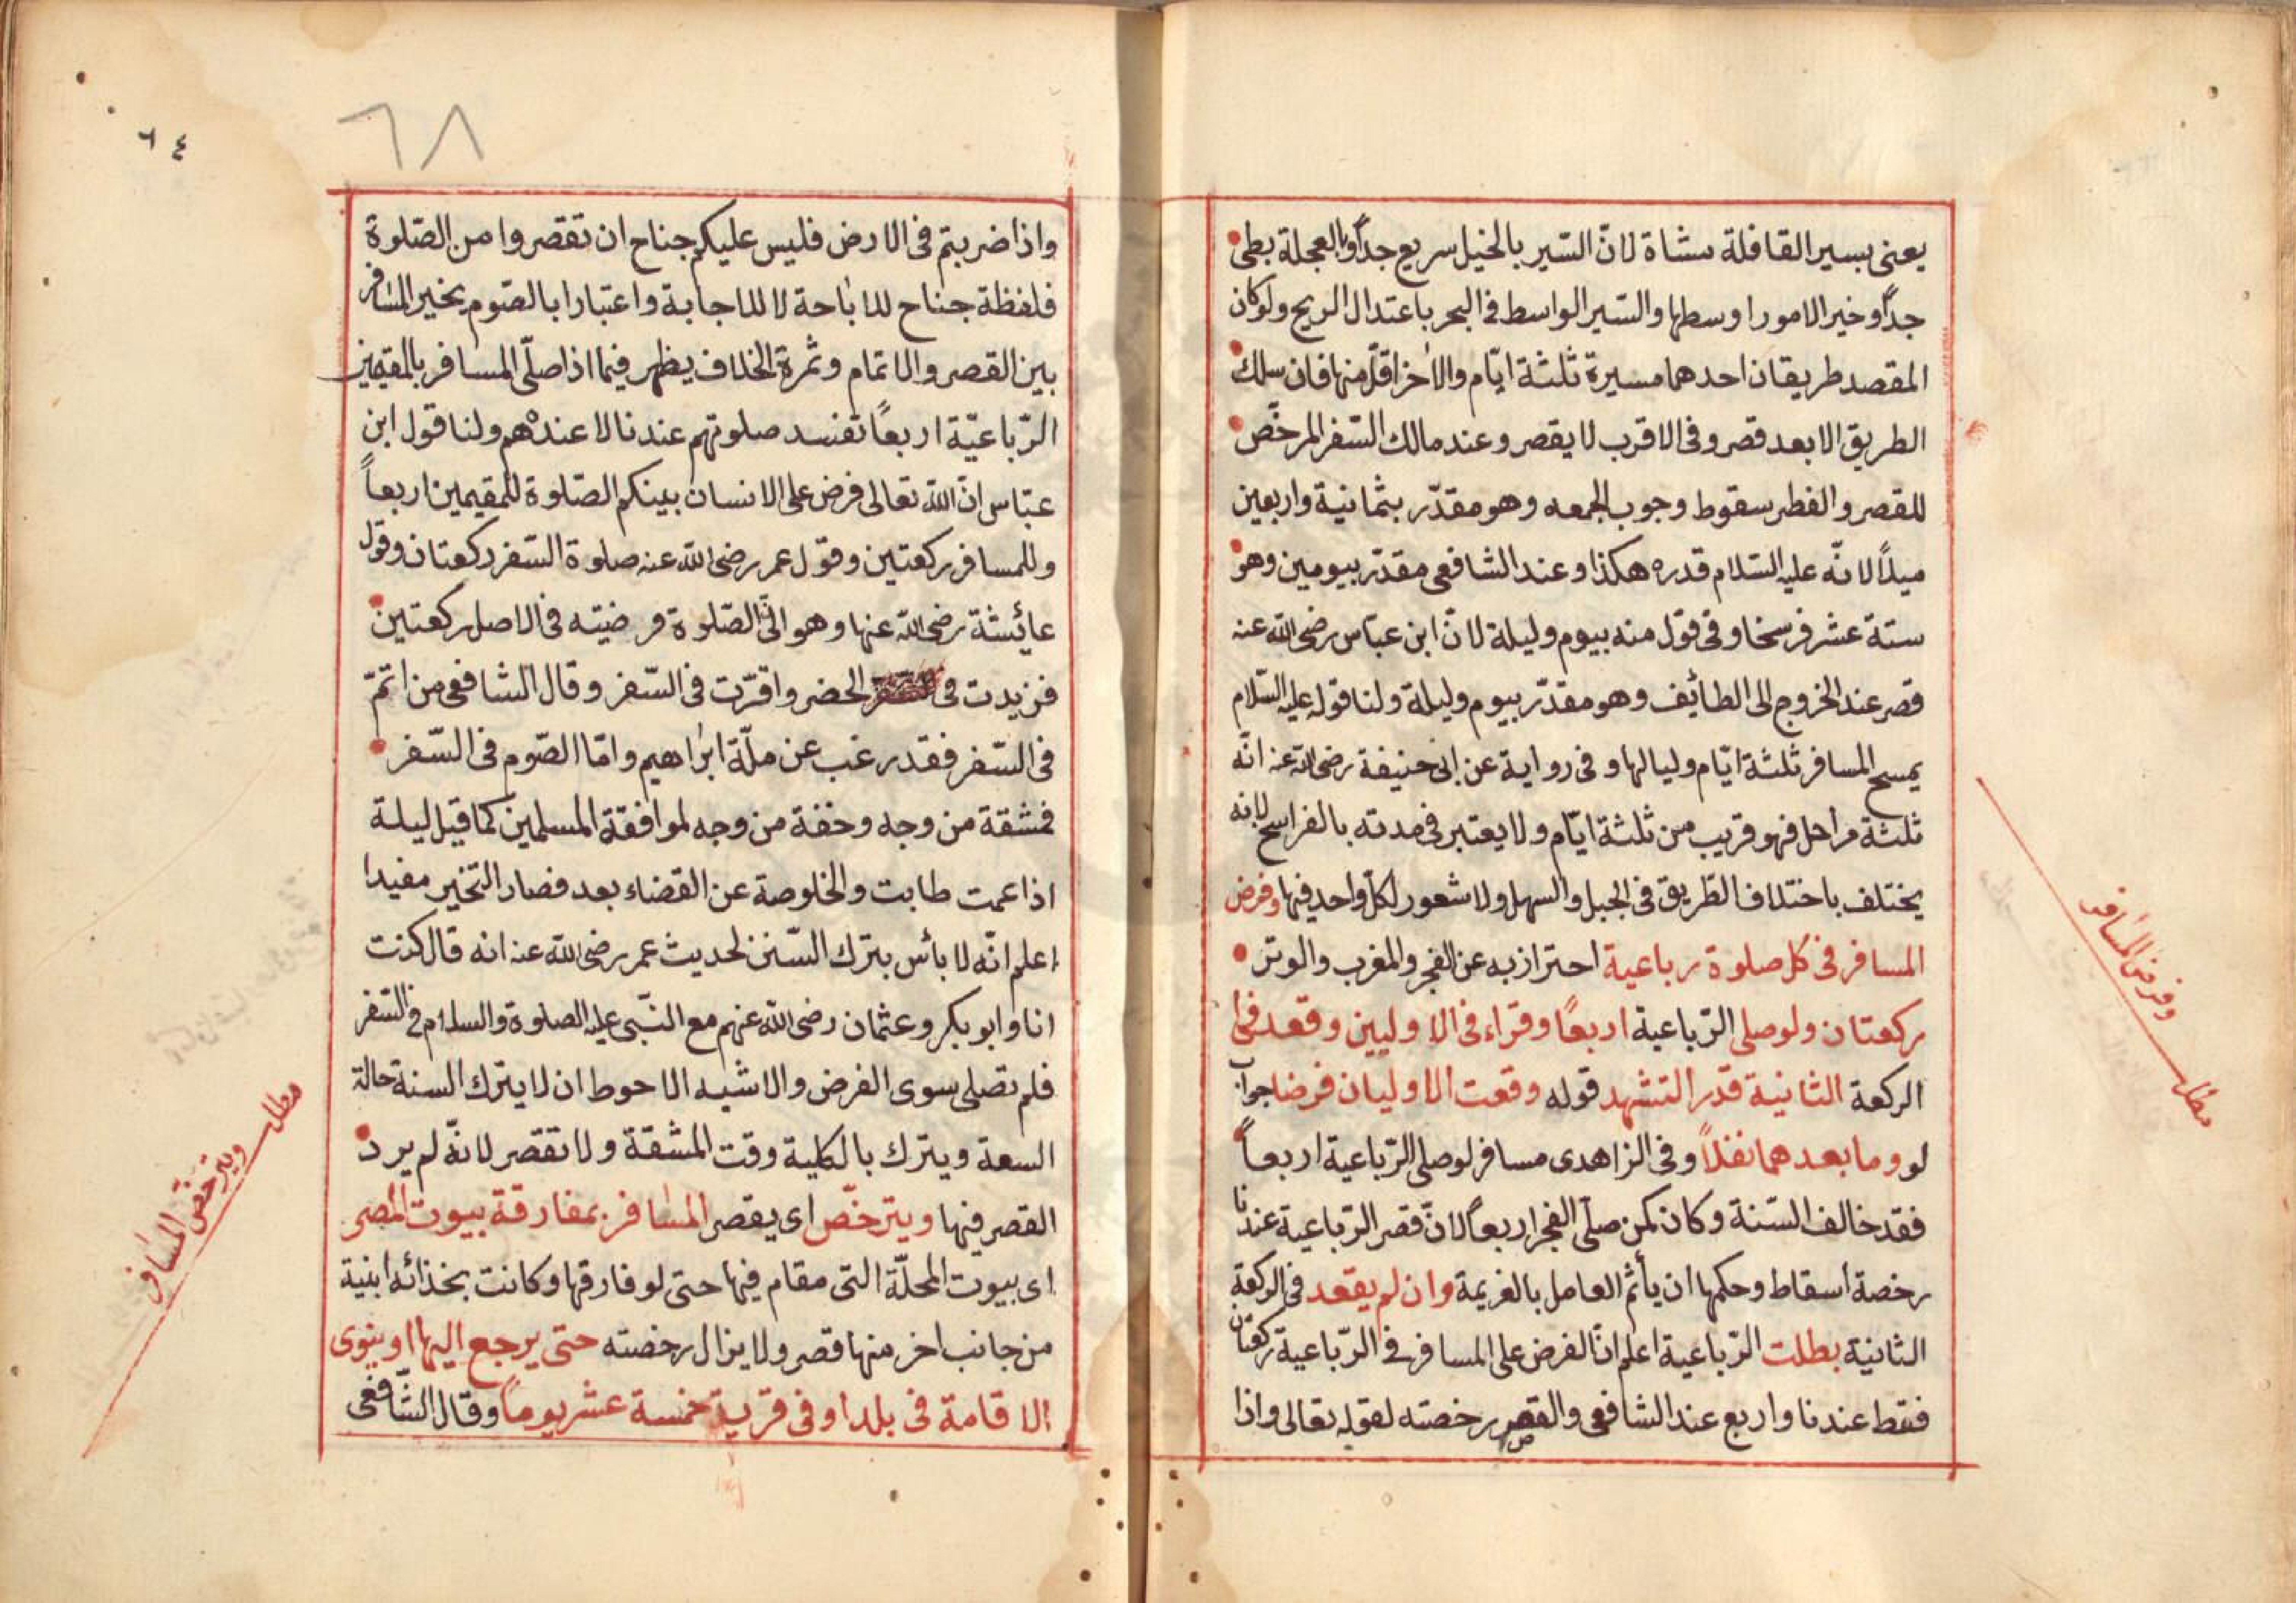 يعنى بسير القافلة مشاة لانّ السّير بالخيل سريع جدّاً وبالعجلة بطئ
جدّاً وخير الامور اوسطها والسّير الواسط فى البحر باعتدال الريح ولو كان
المقصد طريقان احدهما مسيرة ثلثة ايّام والاخر اقلّ منها فان سلك
الطريق الابعد قصر وفى الاقرب لا يقصر وعند مالك السّفر المرخّص
للقصر والفطر سقوط وجوب الجمعه وهو مقدّر بثمانية واربعين
ميلاً لانّه عليه السّلام قدره هكذا وعند الشافعى مقدّر بيومين وهو
ستة عشر فرسخا وفى قول منه بيوم وليلة لانّ ابن عبّاس رضى الله عنه
قصر عند الخروج الى الطائف وهو مقدّر بيوم وليلة ولنا قوله عليه السّلام
يمسح المسافر ثلثة ايّام ولياليها وفى رواية عن ابى حنيفة رضى الله عنه انّه
ثلثة مراحل فهو قريب من ثلثة ايّام ولا يعتبر فى مدته بالفراسخ لانه
يختلف باختلاف الطّريق فى الجبل والسهل ولا شعور لكلّ واحد فيها وفرض
المسافر فى كل صلوة رباعية احتراز به عن الفجر والمغرب والوتر
ركعتان ولو صلى الرّباعية اربعاً وقراء فى الاوليين وقعد فى
الركعة الثانية قدر التشهد قوله وقعت الاوليان فرضا جواب
لو وما بعدهما نفلاً وفى الزاهدى مسافر لو صلى الرّباعية اربعاً
فقد خالف السّنة وكان كمن صلّى الفجر اربعاً لانّ قصر الرّباعية عندنا
رخصة اسقاط وحكمها ان يأثم العامل بالعزيمة وان لم يقعد فى الركعة
الثانية بطلت الرّباعية اعلم انّ الفرض على المسافر فى الرّباعية ركعتان
فقط عندنا واربع عند الشافعى والقصر رخصته لقوله تعالى واذا
وفرض المسافر
مطلب
٦٤
٦٨
واذا ضربتم فى الارض فليس عليكم جناح ان تقصروا من الصّلوة
فلفظة جناح للاباحة لا للاجابة واعتبارا بالصّوم يخير المسافر
بين القصر والاتمام وثمرة الخلاف يظهر فيما اذا صلّى المسافر بالمقيمين
الرّباعيّة اربعاً تفسد صلوتهم عندنا لا عندهم ولنا قول ابن
عبّاس انّ الله تعالى فرض على الانسان بينكم الصّلوة للمقيمين اربعاً
وللمسافر ركعتين وقول عمر رضى الله عنه صلوة السّفر ركعتان وقول
عائشة رضى الله عنها وهو انّ الصّلوة فرضيته فى الاصل ركعتين
فزيدت فى الحضر واقرّت فى السّفر وقال الشافعى من اتمّ
فى السّفر فقد رغب عن ملّة ابراهيم وامّا الصّوم فى السّفر
فمشقة من وجه وخفة من وجه لموافقة المسلمين كما قيل ليلة
اذا عمت طابت والخلوصة عن القضاء بعد فصار التخير مفيدا
اعلم انّه لا بأس بترك السّنن لحديث عمر رضى الله عنه انه قال كنت
انا وابو بكر وعثمان رضى الله عنهم مع النّبى عليه الصلوة والسلام فى السّفر
فلم تصلى سوى الفرض والاشبه الاحوط ان لا يترك السنة حالة
السعة ويترك بالكلية وقت المشقة ولا تقصر لانّه لم يرد
القصر فيها ويترخّص اى يقصر المسافر بمفارقة بيوت المصر
اى بيوت المحلّة التى مقام فيها حتى لو فارقها وكانت بخذائه ابنية
من جانب اخر منها قصر ولا يزال رخصته حتى يرجع اليها او ينوى
الاقامة فى بلد او فى قرية خمسة عشر يوماً وقال الشّافعى
مطلب
ويترخّص المسافر